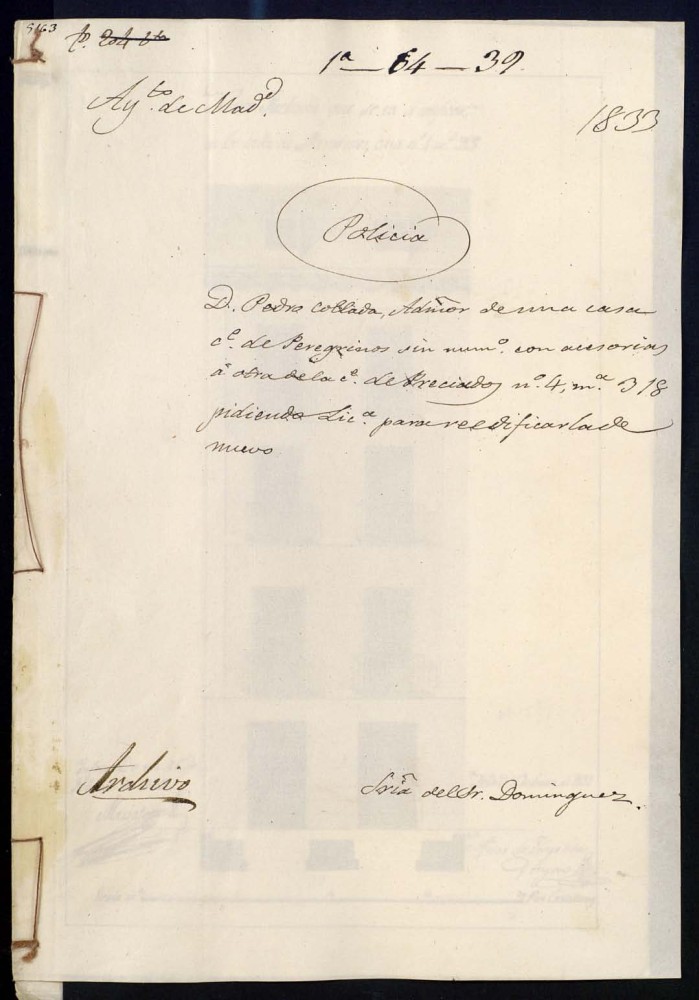 5163
1ª — 64 — 39.
Ayto. de Madd.
1833
Policia
D. Pedro Collada, Admor de una casa
ce. de Peregrinos sin numo. con accesorias
á otra de la ce. de Preciados no. 4, ma. 318
pidiendo Lica. para reedificarla de
nuevo
Archivo
Sria del Sr. Dominguez.